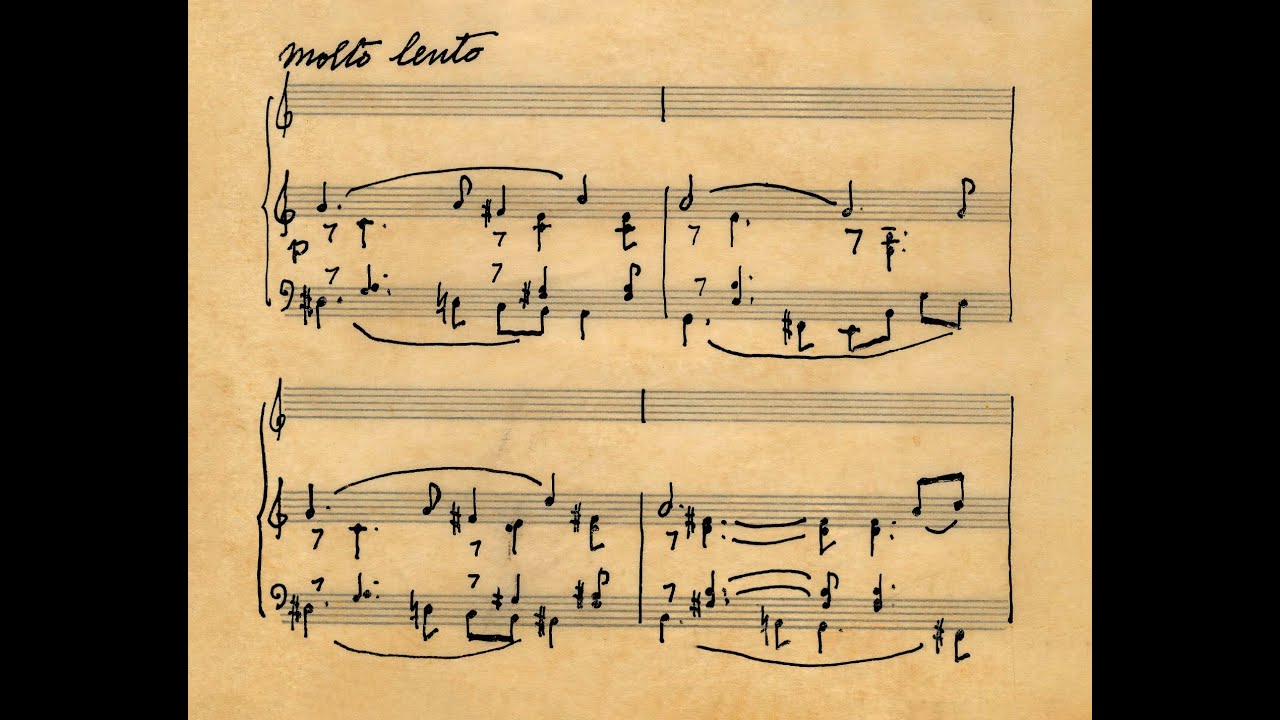 molto lento
p